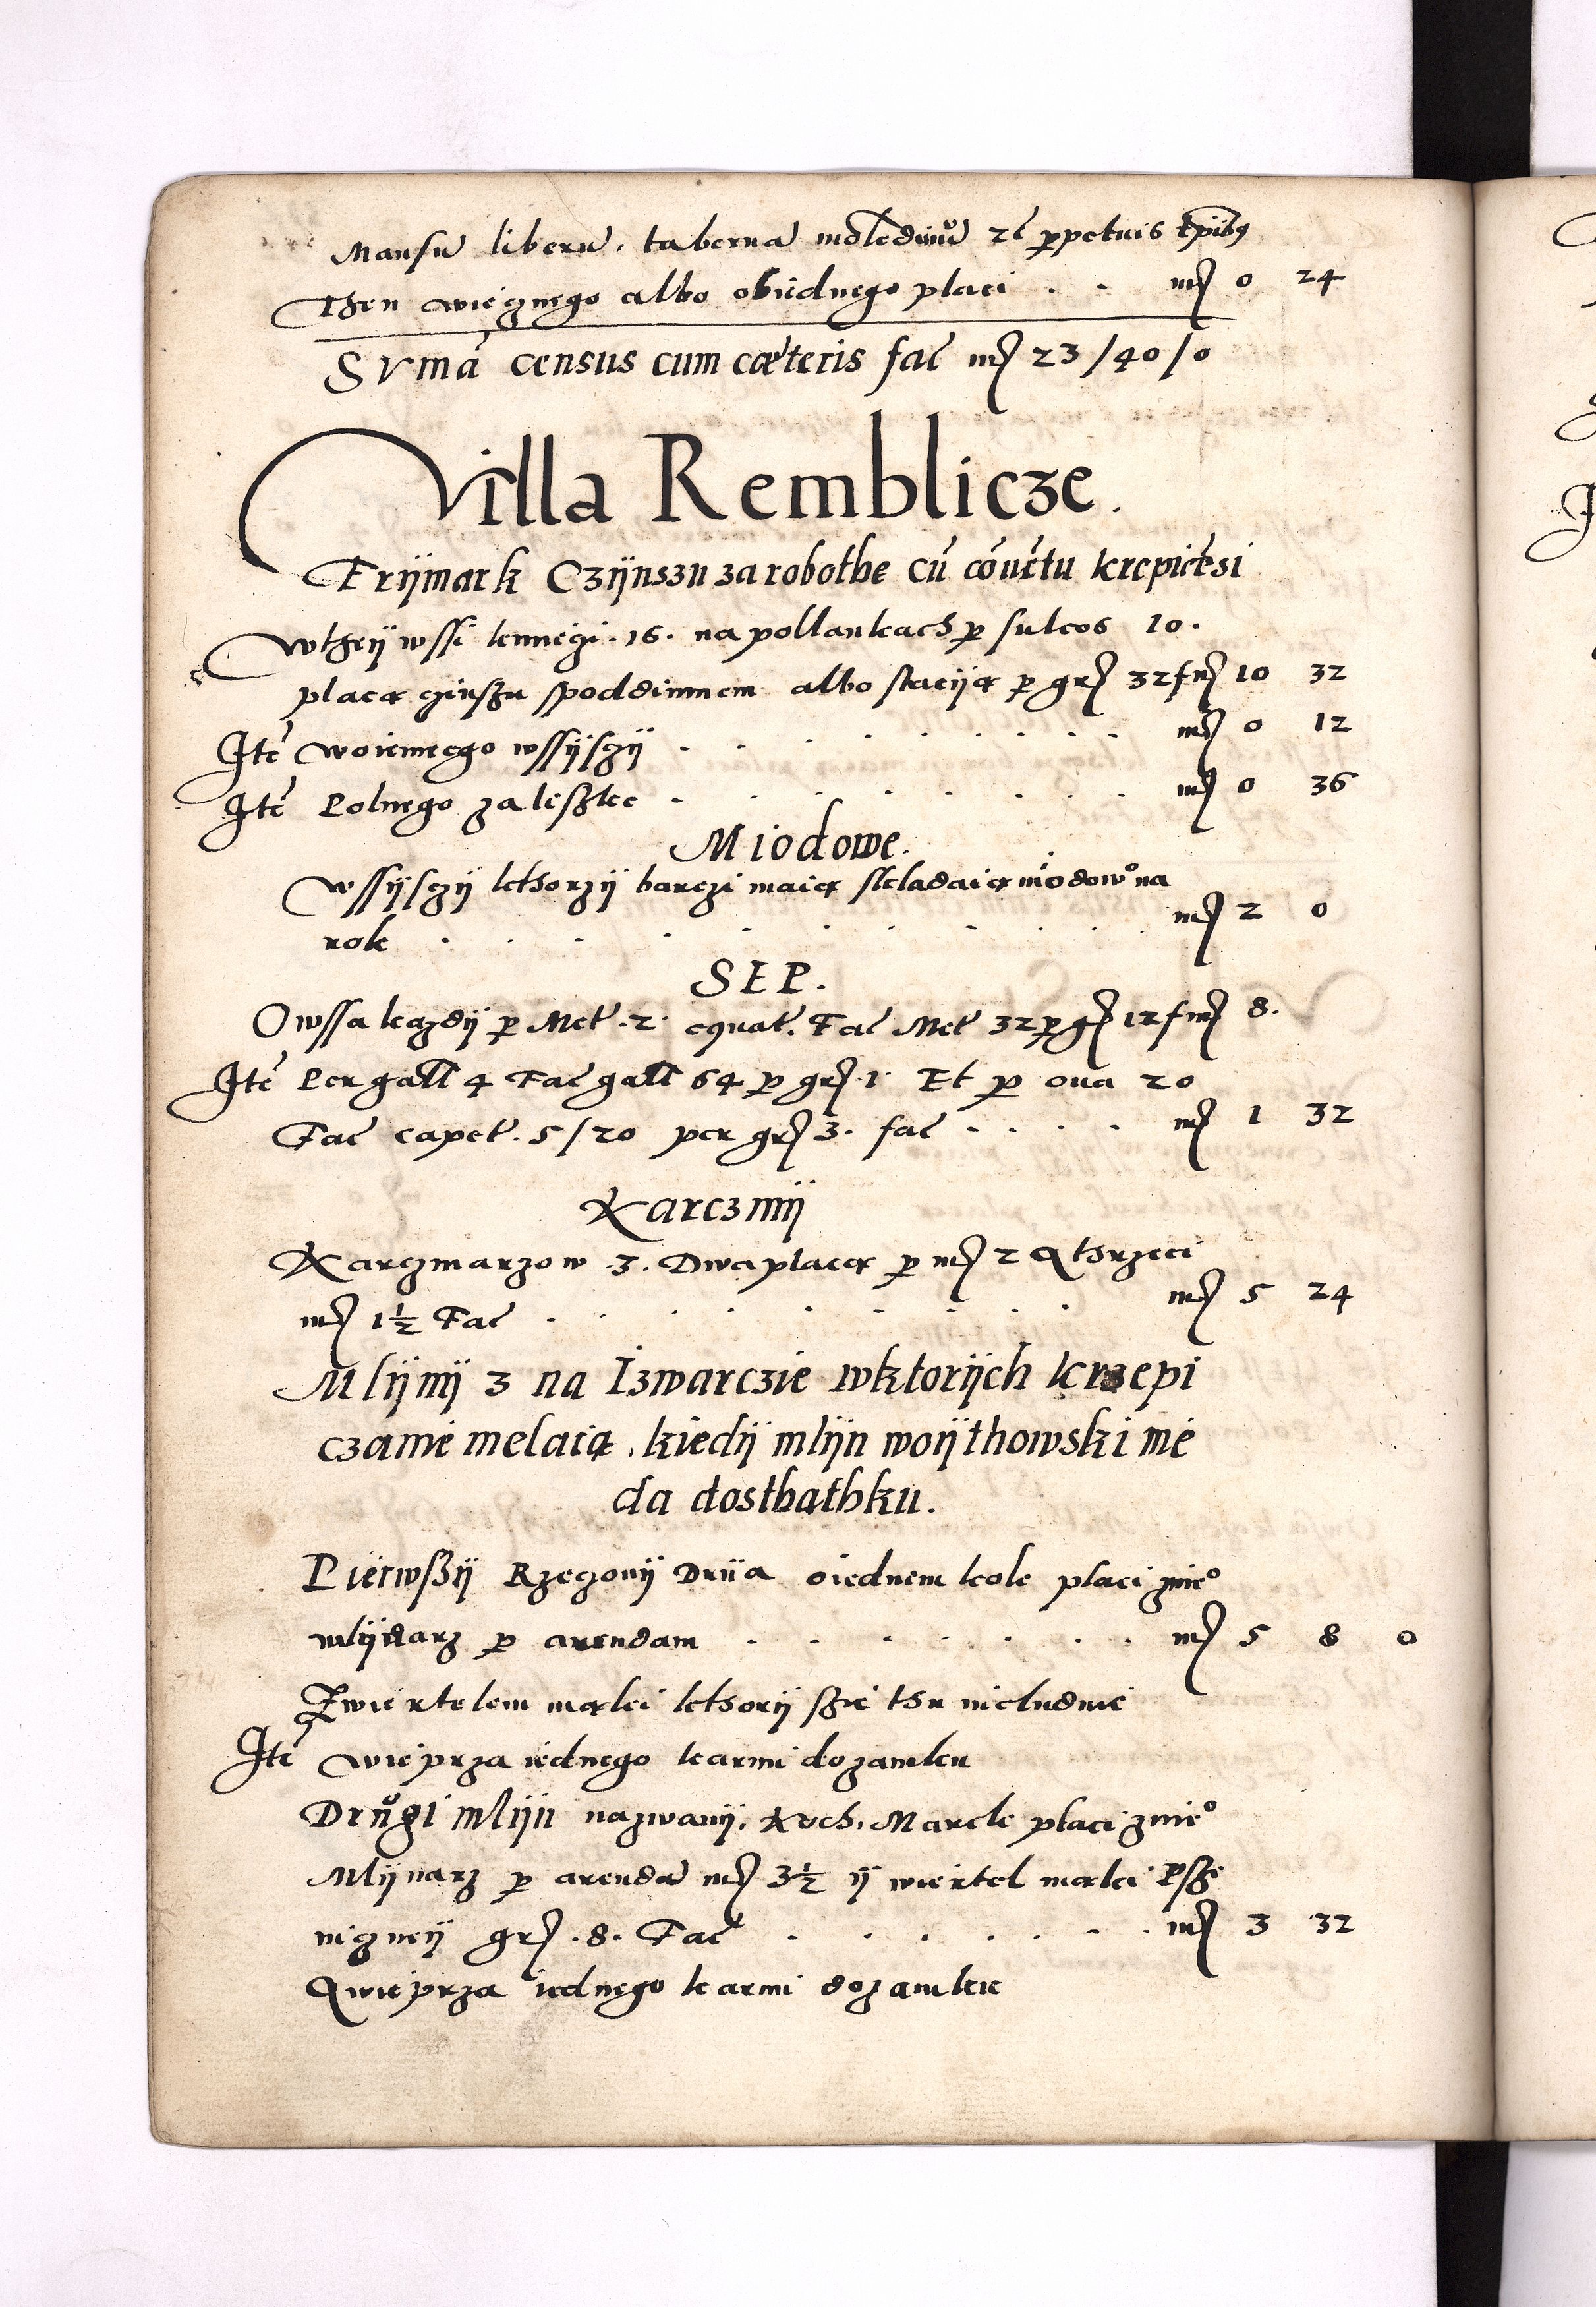 Mansū liberū, tabernā molēdinū rē ꝑpetuis tꝑibꝰ
Then wiecznego albo obiednego placi . . mr̃ 0 24
Sumā census cum cæteris fac̃ mr̃ 23/40/0
Villa Remblicze.
Frijmark Czijnszu za robothe cū cōuētu krepicēsi
Wtheij wssi kmieczi . 16 . na pollankach ꝑ sulcos 10.
placą czinszu spoddimnem albo stacijej ꝑ gr̃ 32 f mr̃ 10 32
Itē woiennego wssijsczij . . . . . . . . mr̃ 0 12
Itē Polnego zaliszkc . . . . . . . mr̃ 0 36
Miodowe.
Wssijsczij kthorzij barczi maią skladaią miodowᵒ na
rok . . . . . . . . . mr̃ 2 0
SEP.
Owssa kazdij ꝑ Met . 2 . equat. Fac̃ Met 32 ꝑ gr̃ 12 f mr̃ 8.
Itē Per gall 4 Fac̃ gall 64 ꝑ gr̃ 1 Et ꝑ oua 20
Fac̃ capet . 5/20 per gr̃ 3. fac̃ . . . . mr̃ 1 32
Karczmij
Karczmarzow . 3 . Dwa placą ꝑ mr̃ 2 A thrzeci
mr̃ 1½ Fac̃ . . . . . . . mr̃ 5 24
Mlijnij 3 na Izwarczie wktorijch krzepi
czanie melaią . kiedij mlijn woijthowski nie
da dosthathku.
Pierwszij Rzeczonij Driia oiednem kole placi znieᵒ
mlijnarz ꝑ arendam . . . . . . . mr̃ 5 8 0
Zwiertelem mąki kthorij szie thu nickludnie
Itē wieprza iednego karmi do zamku
Drůgi mlijn nazwanij . Koch . Marek placi znieᵒ
Mlijnarz ꝑ arendā mr̃ 3½ ij wiertel mąki Psze
niczneij gr̃ . 8 . Fac̃ . . . . . . mr̃ 3 32
A wieprza iednego karmi do zamku